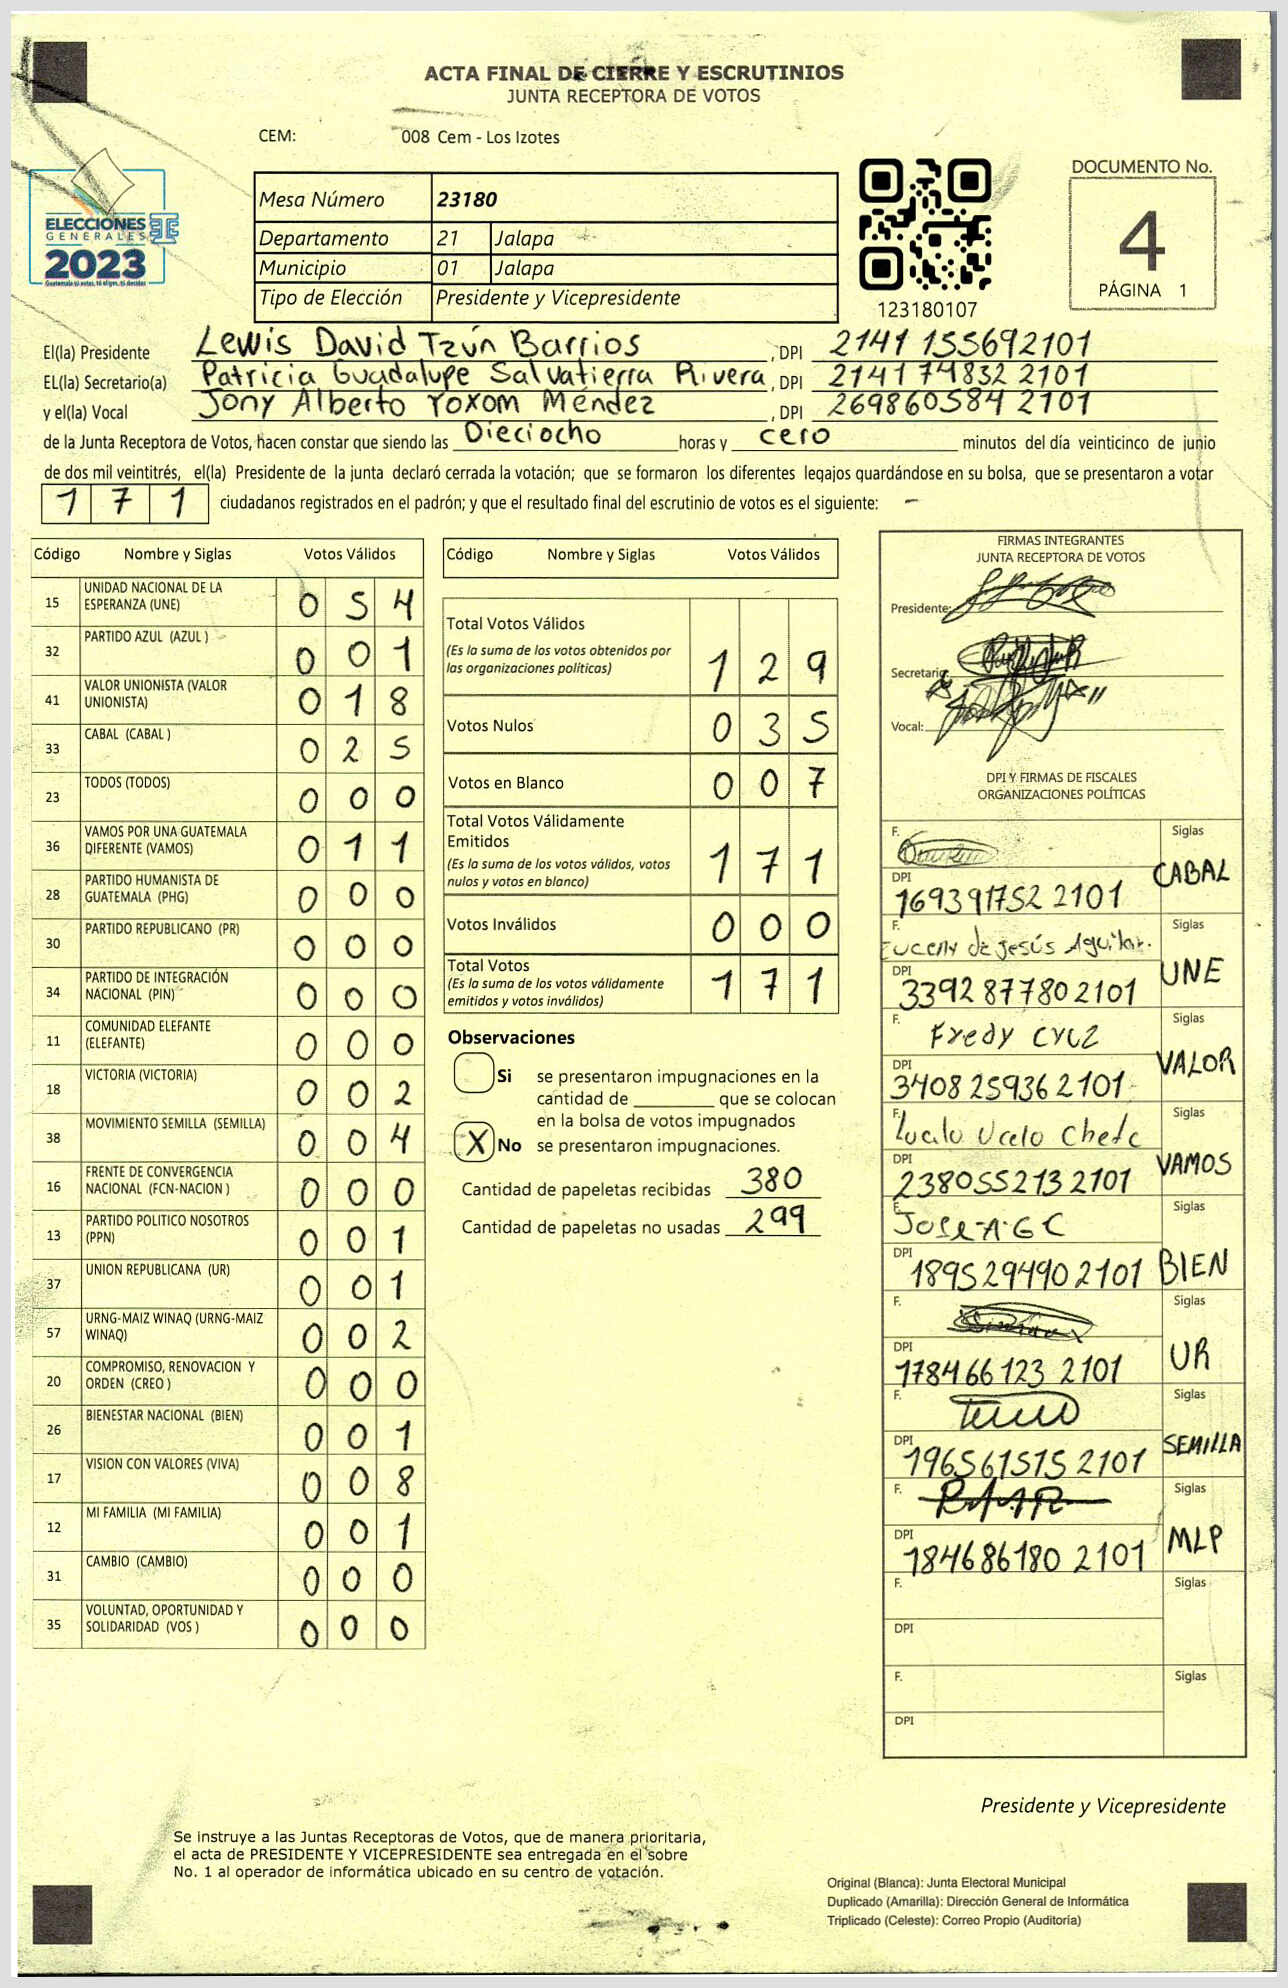 ACTA FINAL DE CIERRE Y ESCRUTINIOS
JUNTA RECEPTORA DE VOTOS
CEM: 008 Cem - Los Izotes
ELECCIONES
GENERALES
2023
Guatemala tú votas, tú eliges, tú decides
Mesa Número 23180
Departamento 21 Jalapa
Municipio 01 Jalapa
Tipo de Elección Presidente y Vicepresidente
123180107
DOCUMENTO No.
4
PÁGINA 1
El(la) Presidente Lewis David Tzún Barrios , DPI 2141 155692101
EL(la) Secretario(a) Patricia Guadalupe Salvatierra Rivera , DPI 2141 74832 2101
y el(la) Vocal Jony Alberto Yoxom Méndez , DPI 269860584 2101
de la Junta Receptora de Votos, hacen constar que siendo las Dieciocho horas y cero minutos del día veinticinco de junio
de dos mil veintitrés, el(la) Presidente de la junta declaró cerrada la votación; que se formaron los diferentes legajos guardándose en su bolsa, que se presentaron a votar
171 ciudadanos registrados en el padrón; y que el resultado final del escrutinio de votos es el siguiente: -
Código Nombre y Siglas Votos Válidos
15 UNIDAD NACIONAL DE LA ESPERANZA (UNE) 054
32 PARTIDO AZUL (AZUL ) 001
41 VALOR UNIONISTA (VALOR UNIONISTA) 018
33 CABAL (CABAL ) 025
23 TODOS (TODOS) 000
36 VAMOS POR UNA GUATEMALA DIFERENTE (VAMOS) 011
28 PARTIDO HUMANISTA DE GUATEMALA (PHG) 000
30 PARTIDO REPUBLICANO (PR) 000
34 PARTIDO DE INTEGRACIÓN NACIONAL (PIN) 000
11 COMUNIDAD ELEFANTE (ELEFANTE) 000
18 VICTORIA (VICTORIA) 002
38 MOVIMIENTO SEMILLA (SEMILLA) 004
16 FRENTE DE CONVERGENCIA NACIONAL (FCN-NACION ) 000
13 PARTIDO POLITICO NOSOTROS (PPN) 001
37 UNION REPUBLICANA (UR) 001
57 URNG-MAIZ WINAQ (URNG-MAIZ WINAQ) 002
20 COMPROMISO, RENOVACION Y ORDEN (CREO ) 000
26 BIENESTAR NACIONAL (BIEN) 001
17 VISION CON VALORES (VIVA) 008
12 MI FAMILIA (MI FAMILIA) 001
31 CAMBIO (CAMBIO) 000
35 VOLUNTAD, OPORTUNIDAD Y SOLIDARIDAD (VOS ) 000
Código Nombre y Siglas Votos Válidos
Total Votos Válidos
(Es la suma de los votos obtenidos por
las organizaciones políticas) 129
Votos Nulos 035
Votos en Blanco 007
Total Votos Válidamente
Emitidos
(Es la suma de los votos válidos, votos
nulos y votos en blanco) 171
Votos Inválidos 000
Total Votos
(Es la suma de los votos válidamente
emitidos y votos inválidos) 171
Observaciones
Si se presentaron impugnaciones en la
cantidad de ________ que se colocan
en la bolsa de votos impugnados
X No se presentaron impugnaciones.
Cantidad de papeletas recibidas 380
Cantidad de papeletas no usadas 299
FIRMAS INTEGRANTES
JUNTA RECEPTORA DE VOTOS
Presidente:
Secretario:
Vocal:
DPI Y FIRMAS DE FISCALES
ORGANIZACIONES POLÍTICAS
F. Siglas
CABAL
DPI
169391752 2101
F. de Jesús Aguilar. Siglas
UNE
DPI
3392 877802101
F. Fredy Cruz Siglas
VALOR
DPI
3408 25936 2101
F. Siglas
VAMOS
DPI
238055213 2101
F. José A G C Siglas
BIEN
DPI
1895 29490 2101
F. Siglas
UR
DPI
178466123 2101
F. Siglas
SEMILLA
DPI
196561515 2101
F. Siglas
MLP
DPI
184686180 2101
F. Siglas
DPI
F. Siglas
DPI
Presidente y Vicepresidente
Se instruye a las Juntas Receptoras de Votos, que de manera prioritaria,
el acta de PRESIDENTE Y VICEPRESIDENTE sea entregada en el sobre
No. 1 al operador de informática ubicado en su centro de votación.
Original (Blanca): Junta Electoral Municipal
Duplicado (Amarilla): Dirección General de Informática
Triplicado (Celeste): Correo Propio (Auditoría)